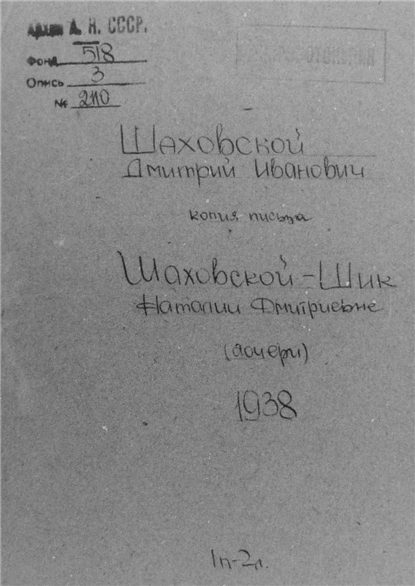 Архив А. Н. СССР.
Фонд 518
Опись 3
№ 2110
Шаховской
Дмитрий Иванович
копия письма
Шаховской-Шик
Наталии Дмитриевне
(дочери)
1938
1п-2л.